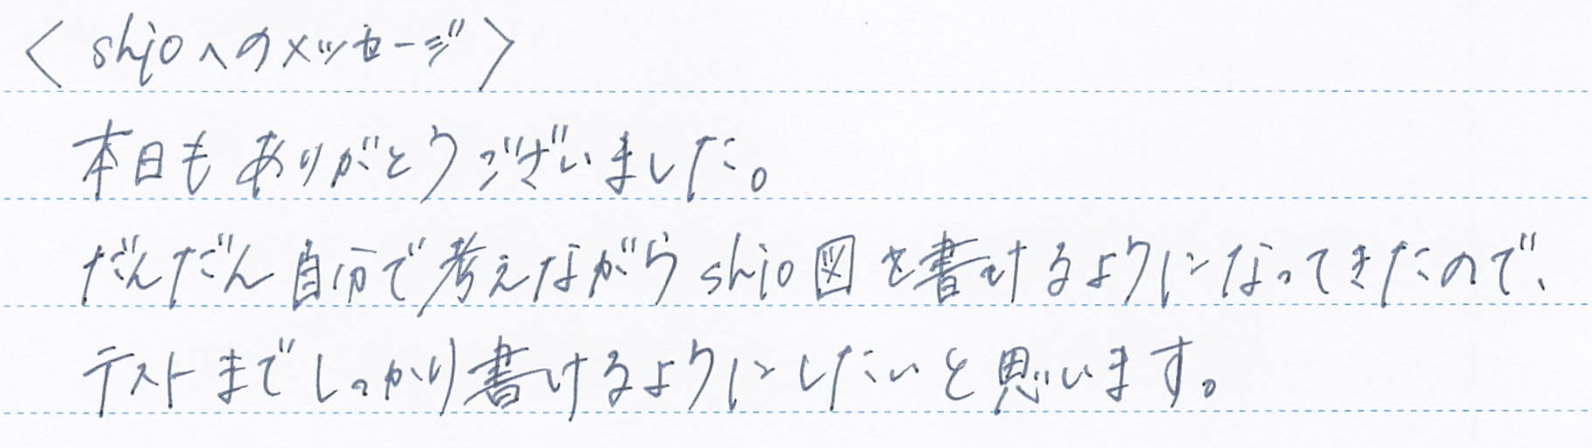 〈shioへのメッセージ〉
本日もありがとうございました。
だんだん自分で考えながらshio図を書けるようになってきたので、
テストまでしっかり書けるようにしたいと思います。